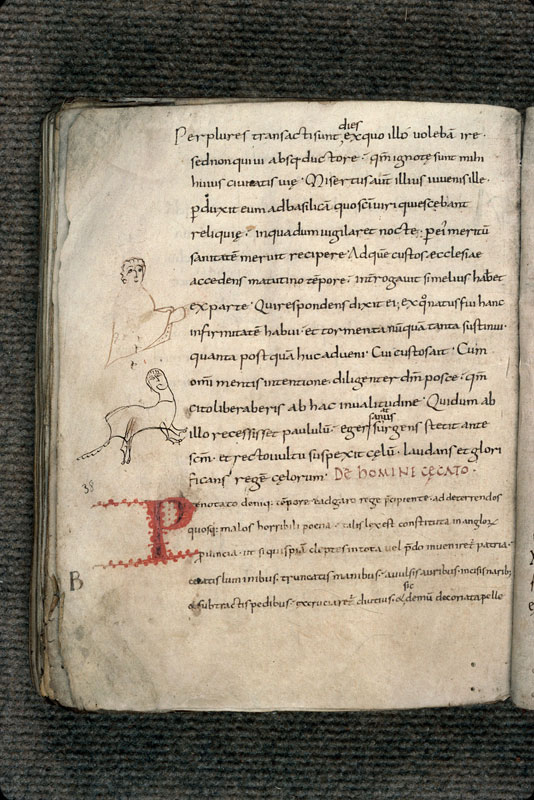 dies
Per plures transacti sunt, ex quo illó volebā ire·
sed non quivi absq; ductore· qm̄ ignotę sunt mihi
huius civitatis vię· Misertus aut̄ illius iuvenis ille·
pduxit eum ad basilicā quo sc̄i viri quiescebant
reliquię· in qua dum vigilaret nocte· p ei meritū
sanitatē meruit recipere· Adque custos ecclesiae
accedens matutino tēpore· int̄rogavit si melius hab&
ex parte· Qui respondens dixit ei; ex q natus fui hanc
infirmitatē habui· et tormenta nūquā tanta sustinui·
quanta post quā huc adveni· Cui custos ait· Cum
omi mentis intentione· diligenter dm̄ posce· qm̄
cito liberaberis ab hac invalitudine· Quidum ab
sanus
illo recessisset paululū· eger surgens stetit ante
sc̄m· et recto vultu suspexit cęlū· laudans et glori
ficans regē cęlorum· DE hOMINE CĘCATO·
38
Prenotato deniq; tēpore· eadgaro rege pcipiente· ad deterrendos
quosq; malos horribili poena· talis lex est constituta in anglorꝝ
puincia· ut si quispiā cleptes in tota vel pdo inveniret̄ patria·
cęcatis luminibus· truncatis manibus· avulsis auribus· incisis narib;
sic
& subtractis pedibus· excruciaret̄ diutius· & demū decoriata pelle
B